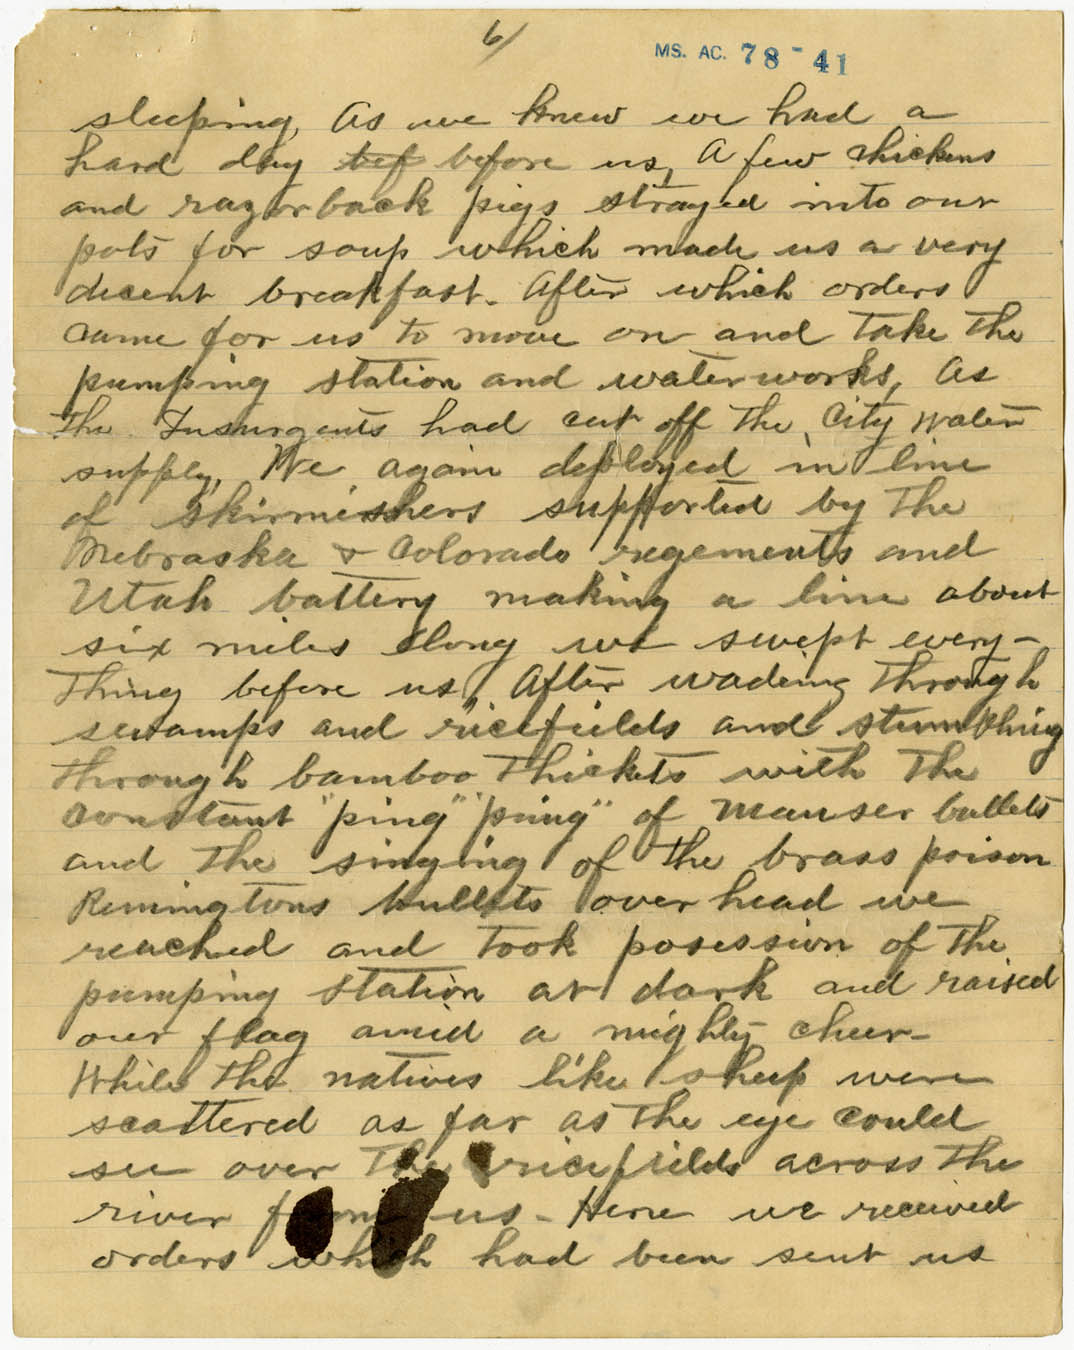 6/
MS. AC. 78-41
sleeping, As we knew we had a
hard day bef before us, A few chickens
and razorback pigs strayed into our
pots for soup which made us a very
decent breakfast. After which orders
came for us to move on and take the
pumping station and waterworks, As
the Insurgents had cut off the City Water
supply, We again deployed in line
of skirmishers supported by the
Nebraska & Colorado regements and
Utah battery making a line about
six miles long we swept every-
thing before us, After wadeing through
swamps and ricefields and
through bamboo thickets with the
constant "ping" "ping" of Mauser bullets
and the singing of the brass poison
Remingtons bullets over head we
reached and took posession of the
pumping station at dark and raised
our flag amid a mighty cheer-
While the natives like sheep were
scattered as far as the eye could
see over the ricefields across the
river from us - Here we received
orders which had been sent us